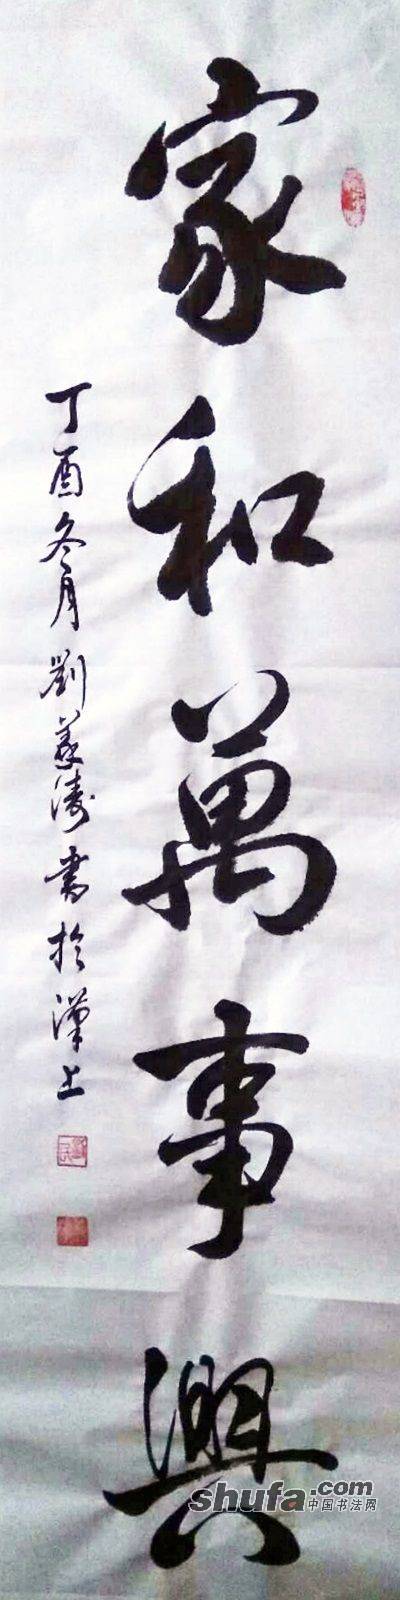 家和萬事興
丁酉冬月劉義濤書於漢上
shufa.com
中国书法网